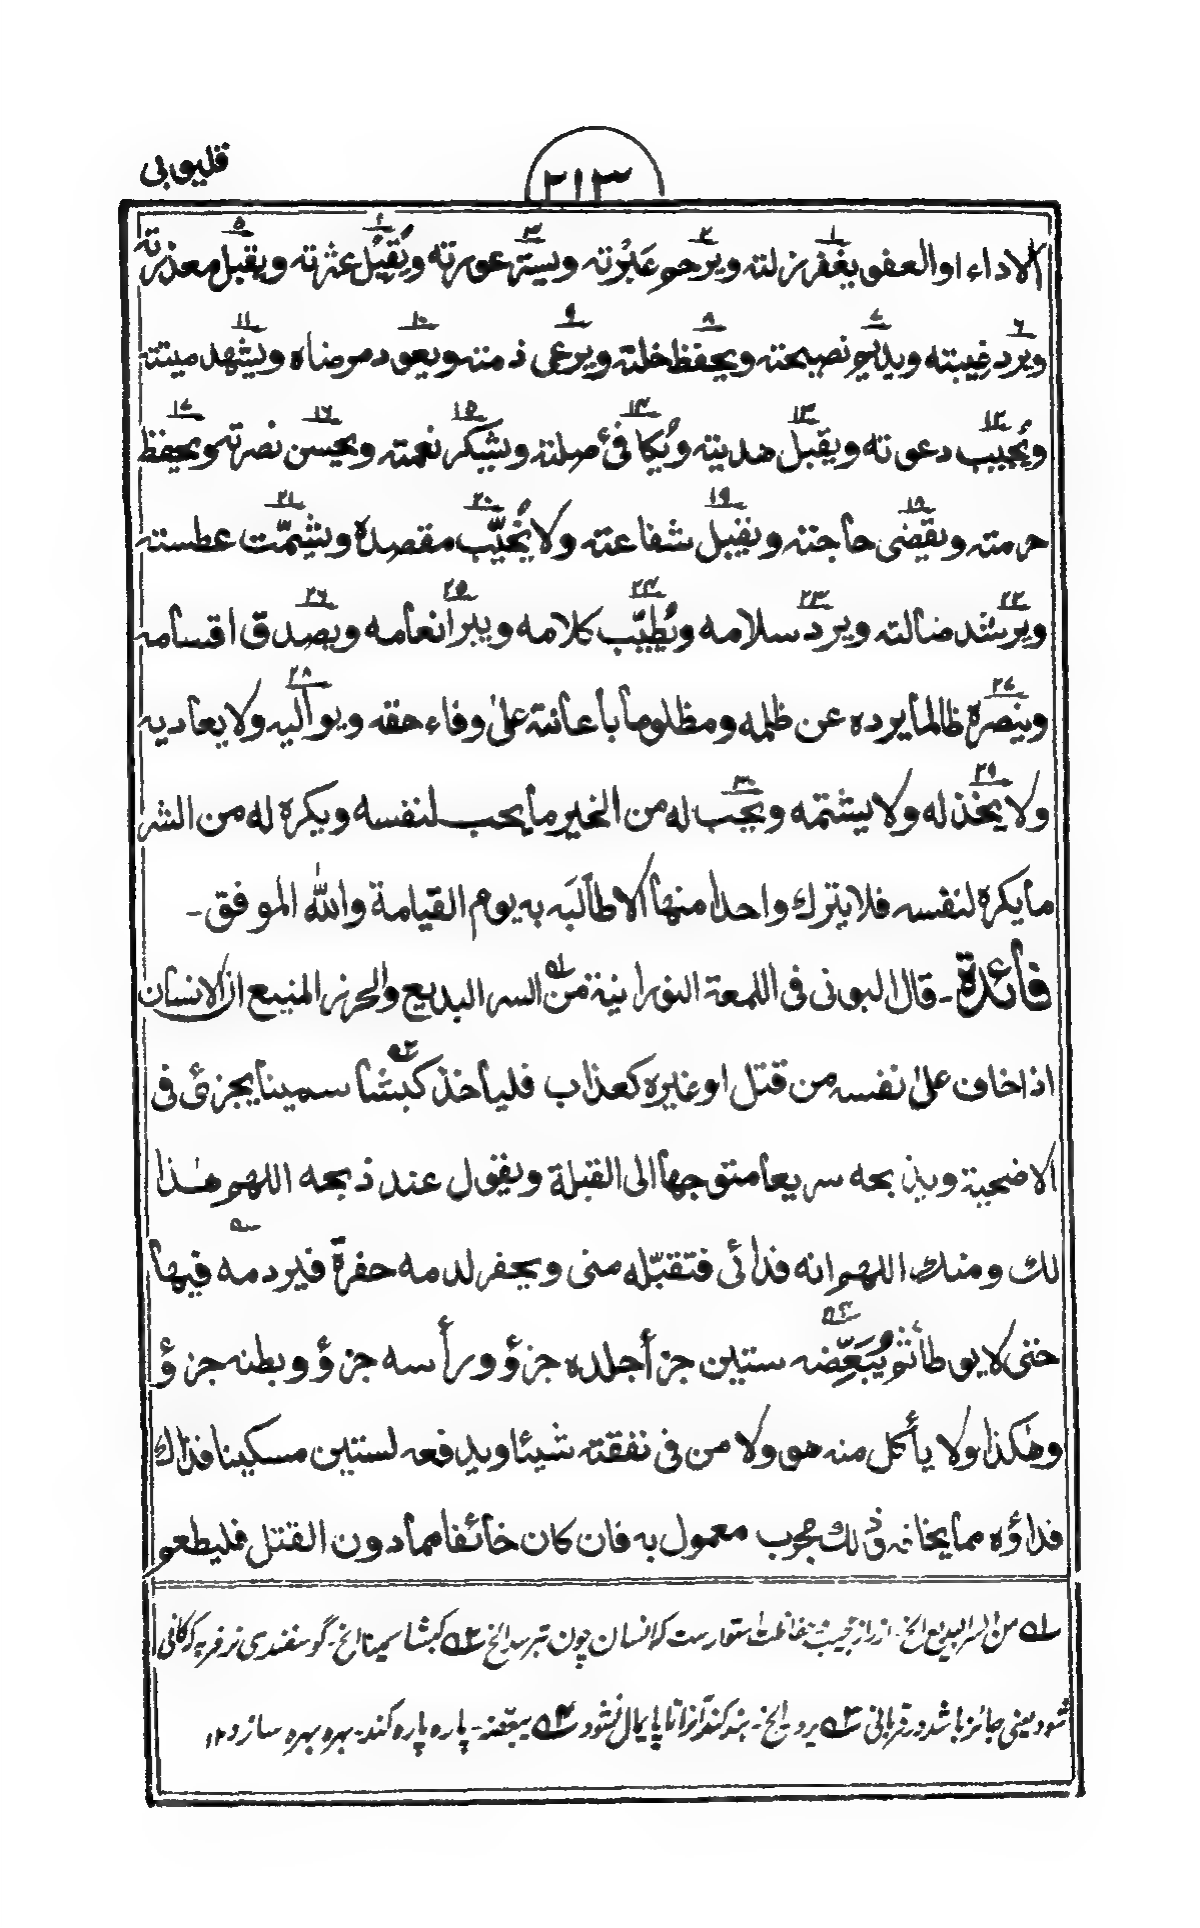 قليوبى
٢١٣
الا الاداء او العفو يغفر زلته ويرحم عَبْرته ويستر عورته ويُقيل عثرته ويقبل معذرته
ويرد غيبته ويديم نصيحته ويحفظ خلته ويرعى ذمته ويعود مرضاه ويشهد ميتته
ويُجيب دعوته ويقبل هديته ويُكافئ صلته ويشكر نعمته ويحسن نصرته ويحفظ
حرمته ويقضى حاجته ويقبل شفاعته ولا يُخَيِّب مقصده ويشمّت عطسته
ويرشد ضالته ويرد سلامه ويُطَيِّب كلامه ويبر انعامه ويصدق اقسامه
وينصره ظالما يرده عن ظلمه ومظلوما باعانته على وفاء حقه ويواليه ولا يعاديه
ولا يخذله ولا يشتمه ويحب له من الخير ما يحب لنفسه ويكره له من الشر
ما يكره لنفسه فلا يترك واحدا منها الا طالَبَه به يوم القيامة والله الموفق ـ
فائدة ـ قال البونى فى اللمعة النورانية من السر البديع والحرز المنيع ان الانسان
اذا خاف على نفسه من قتل او غيره كعذاب فلياخذ كبشا سمينا يجزئ فى
الاضحية ويذبحه سريعا متوجها الى القبلة ويقول عند ذبحه اللهم هذا
لك ومنك اللهم انه فدائى فتقبّله منى ويحفر لدمه حفرة فيرد مه فيها
حتى لا يوطأ ثم يُبَعِّضه ستين جزأ جلده جزؤ ورأسه جزؤ وبطنه جزؤ
وهكذا ولا يأكل منه هو ولا من فى نفقته شيئا ويدفعه لستين مسكينا فذاك
فداؤه مما يخافه وذلك مجرب معمول به فان كان خائفا مما دون القتل فليطعم
١ من السر البديع الخ ـ از راز عجيب حفاظت استوارست كه انسان چون بترسد الخ ٢ كبشا سمينا الخ ـ گوسفندى نر فربه كه كافى
شود يعنى جائز باشد در قربانى ٣ يرد ـ الخ ـ بند كند آنرا تا پايمال نشود ٤ يبعّضه ـ پاره پاره كند ـ بهره بهره سازد ١٢